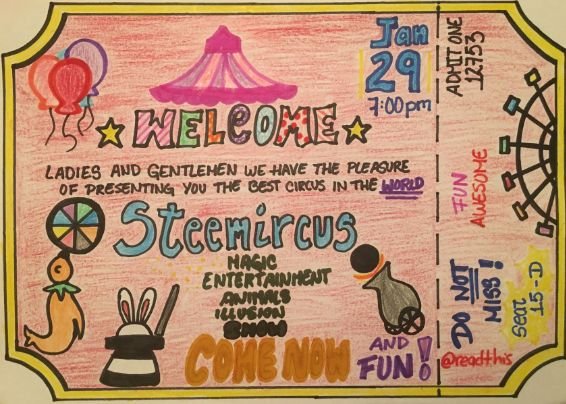 Jan
29
7:00pm
WELCOME
LADIES AND GENTLEMEN WE HAVE THE PLEASURE
OF PRESENTING YOU THE BEST CIRCUS IN THE WORLD
Steemircus
MAGIC
ENTERTAINMENT
ANIMALS
ILLUSION
SHOW
COME NOW
AND
FUN!
ADMIT ONE
12753
FUN
AWESOME
DO NOT
MISS!
Seat
15-D
@readthis